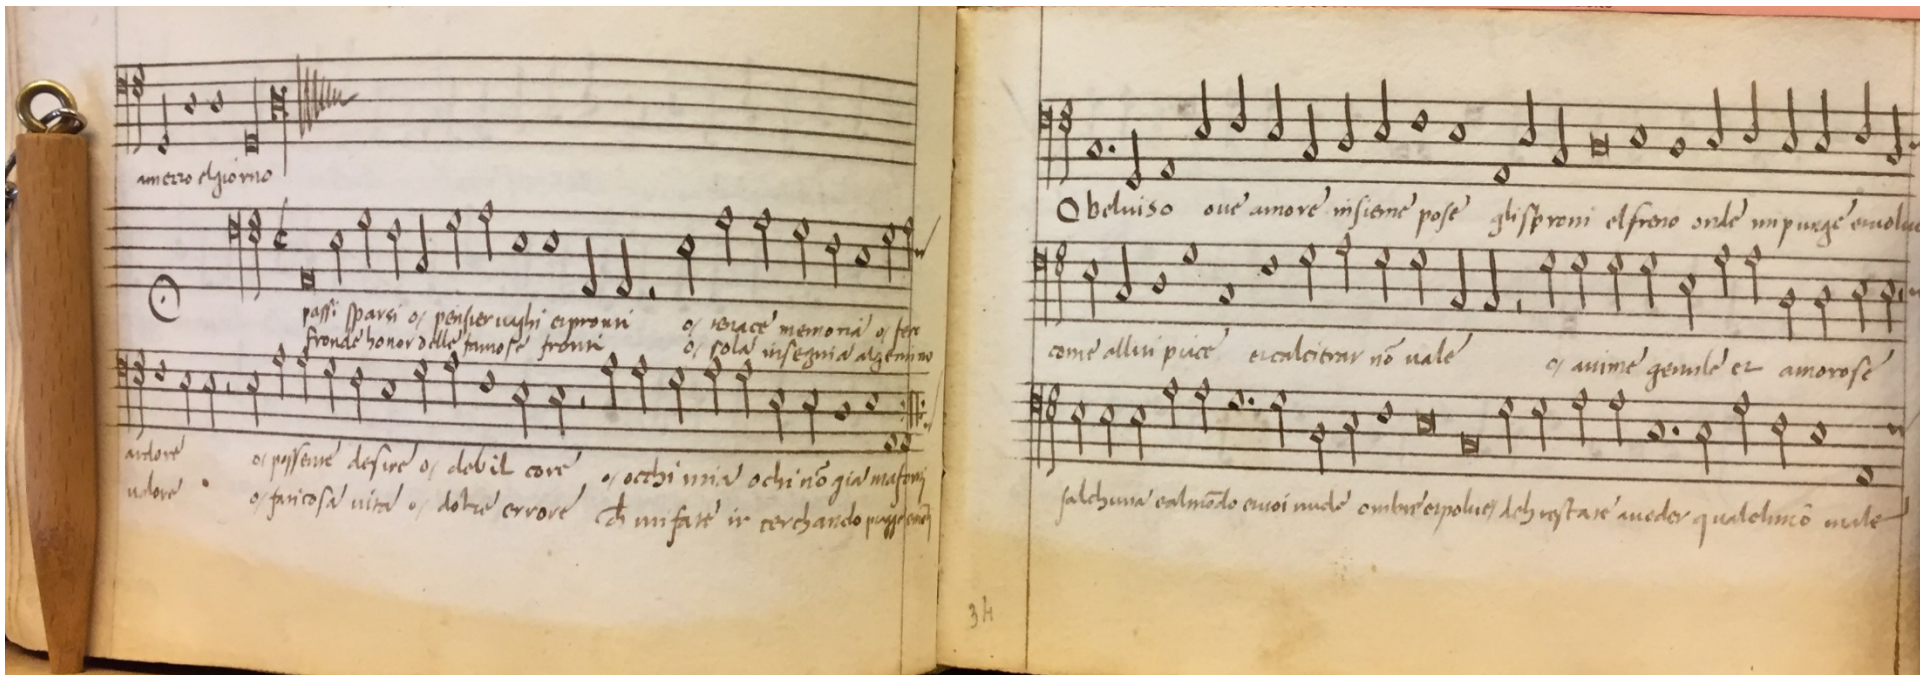 amezo el giorno
O passi sparsi o/ pensier uaghi et pronti o/ tenace memoria o/ fero
fronde honor delle famose fronti o/ sola insegnia al gemino
ardore o/ possente desire o/ debil core o/ occhi miei ochi nõ gia ma fonti
ualore o/ faticosa uita o/ dolce errore ch mi fate ir cerchando piagge e monti
O bel uiso oue amore insieme pose gli sproni el freno onde mi punge e uolue
come allui piace et calcitrar nõ uale o/ anime gentile et amorose
salchuna eal mõdo e uoi nude ombre et polue deh restate aueder qual el mio male
34